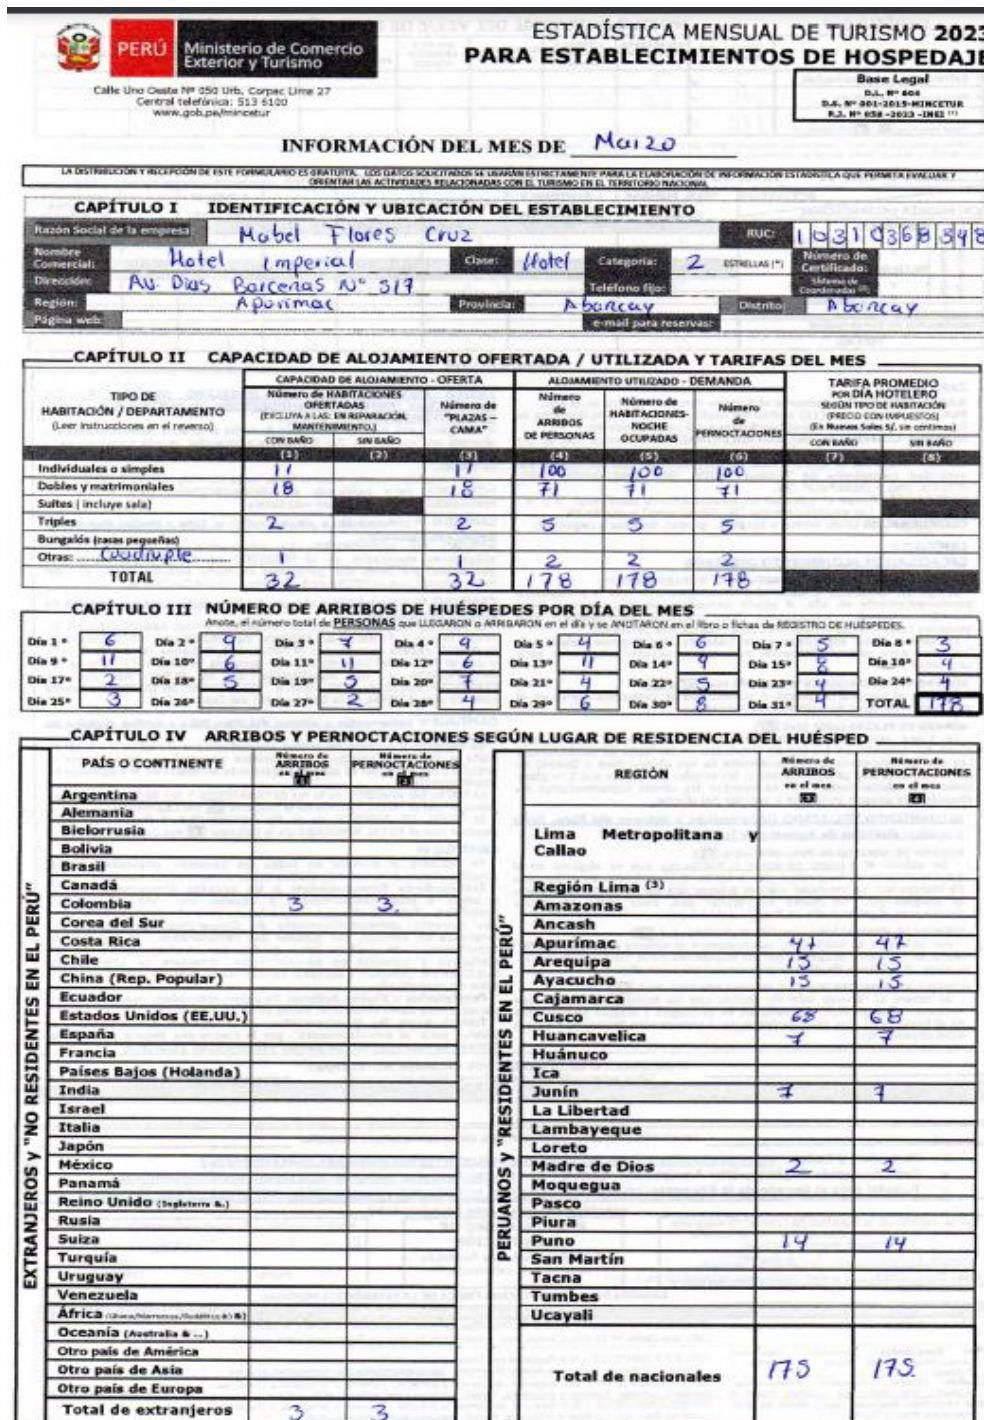 PERÚ Ministerio de Comercio Exterior y Turismo
Calle Uno Oeste Nº 050 Urb. Corpac Lima 27
Central telefónica: 513 6100
www.gob.pe/mincetur
ESTADÍSTICA MENSUAL DE TURISMO 2023
PARA ESTABLECIMIENTOS DE HOSPEDAJE
Base Legal
D.L. Nº 604
D.S. Nº 001-2015-MINCETUR
R.J. Nº 058 -2023 -INEI (1)
INFORMACIÓN DEL MES DE Marzo
LA DISTRIBUCIÓN Y RECEPCIÓN DE ESTE FORMULARIO ES GRATUITA. LOS DATOS SOLICITADOS SE USARÁN ESTRICTAMENTE PARA LA ELABORACIÓN DE INFORMACIÓN ESTADÍSTICA QUE PERMITA EVALUAR Y
ORIENTAR LAS ACTIVIDADES RELACIONADAS CON EL TURISMO EN EL TERRITORIO NACIONAL
CAPÍTULO I IDENTIFICACIÓN Y UBICACIÓN DEL ESTABLECIMIENTO
Razón Social de la empresa: Mabel Flores Cruz RUC: 10310368348
Nombre Comercial: Hotel Imperial Clase: Hotel Categoría: 2 ESTRELLAS (*) Número de Certificado:
Dirección: Av. Dias Barcenas Nº 517 Teléfono fijo: Sistema de Coordenadas
Región: Apurimac Provincia: Abancay Distrito: Abancay
Página web: e-mail para reservas:
CAPÍTULO II CAPACIDAD DE ALOJAMIENTO OFERTADA / UTILIZADA Y TARIFAS DEL MES
TIPO DE HABITACIÓN / DEPARTAMENTO
(Leer instrucciones en el reverso)
CAPACIDAD DE ALOJAMIENTO - OFERTA
Número de HABITACIONES OFERTADAS
(EXCLUYA A LAS: EN REPARACIÓN, MANTENIMIENTO.)
CON BAÑO SIN BAÑO
Número de "PLAZAS – CAMA"
ALOJAMIENTO UTILIZADO - DEMANDA
Número de ARRIBOS DE PERSONAS
Número de HABITACIONES-NOCHE OCUPADAS
Número de PERNOCTACIONES
TARIFA PROMEDIO
POR DÍA HOTELERO
SEGÚN TIPO DE HABITACIÓN
(PRECIO CON IMPUESTOS)
(En Nuevos Soles S/. sin centimos)
CON BAÑO SIN BAÑO
(1) (2) (3) (4) (5) (6) (7) (8)
Individuales o simples 11 11 100 100 100
Dobles y matrimoniales 18 18 71 71 71
Suites ( incluye sala)
Triples 2 2 5 5 5
Bungalós (casas pequeñas)
Otras: Cuadruple 1 1 2 2 2
TOTAL 32 32 178 178 178
CAPÍTULO III NÚMERO DE ARRIBOS DE HUÉSPEDES POR DÍA DEL MES
Anote, el número total de PERSONAS que LLEGARON o ARRIBARON en el día y se ANOTARON en el libro o fichas de REGISTRO DE HUÉSPEDES.
Día 1º 6 Día 2º 9 Día 3º 7 Día 4º 9 Día 5º 4 Día 6º 6 Día 7º 5 Día 8º 3
Día 9º 11 Día 10º 6 Día 11º 11 Día 12º 6 Día 13º 11 Día 14º 9 Día 15º 8 Día 16º 4
Día 17º 2 Día 18º 5 Día 19º 5 Día 20º 7 Día 21º 4 Día 22º 5 Día 23º 4 Día 24º 4
Día 25º 3 Día 26º Día 27º 2 Día 28º 4 Día 29º 6 Día 30º 8 Día 31º 4 TOTAL 178
CAPÍTULO IV ARRIBOS Y PERNOCTACIONES SEGÚN LUGAR DE RESIDENCIA DEL HUÉSPED
EXTRANJEROS y "NO RESIDENTES EN EL PERÚ"
PAÍS O CONTINENTE
Número de ARRIBOS en el mes
Número de PERNOCTACIONES en el mes
Argentina
Alemania
Bielorrusia
Bolivia
Brasil
Canadá
Colombia 3 3.
Corea del Sur
Costa Rica
Chile
China (Rep. Popular)
Ecuador
Estados Unidos (EE.UU.)
España
Francia
Países Bajos (Holanda)
India
Israel
Italia
Japón
México
Panamá
Reino Unido (Inglaterra &.)
Rusia
Suiza
Turquía
Uruguay
Venezuela
África
Oceanía (Australia & ...)
Otro país de América
Otro país de Asia
Otro país de Europa
Total de extranjeros 3 3
PERUANOS y "RESIDENTES EN EL PERÚ"
REGIÓN
Número de ARRIBOS en el mes
Número de PERNOCTACIONES en el mes
Lima Metropolitana y
Callao
Región Lima (3)
Amazonas
Ancash
Apurímac 47 47
Arequipa 15 15
Ayacucho 15 15
Cajamarca
Cusco 68 68
Huancavelica 7 7
Huánuco
Ica
Junín 7 7
La Libertad
Lambayeque
Loreto
Madre de Dios 2 2
Moquegua
Pasco
Piura
Puno 14 14
San Martín
Tacna
Tumbes
Ucayali
Total de nacionales 175 175.